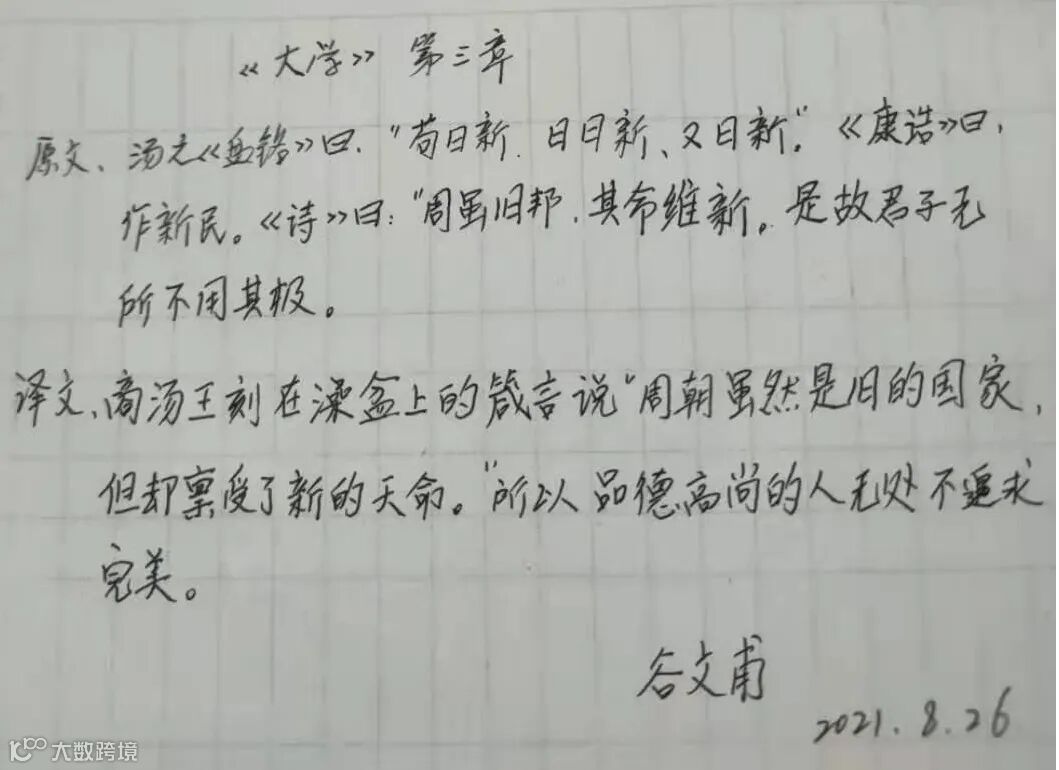 《大学》 第三章
原文、汤之《盘铭》曰、"苟日新、日日新、又日新。"《康诰》曰,
作新民。《诗》曰:"周虽旧邦,其命维新。是故君子无
所不用其极。
译文、商汤王刻在澡盆上的箴言说"周朝虽然是旧的国家,
但却禀受了新的天命。"所以品德高尚的人无处不追求
完美。
谷文甫
2021.8.26
大数跨境